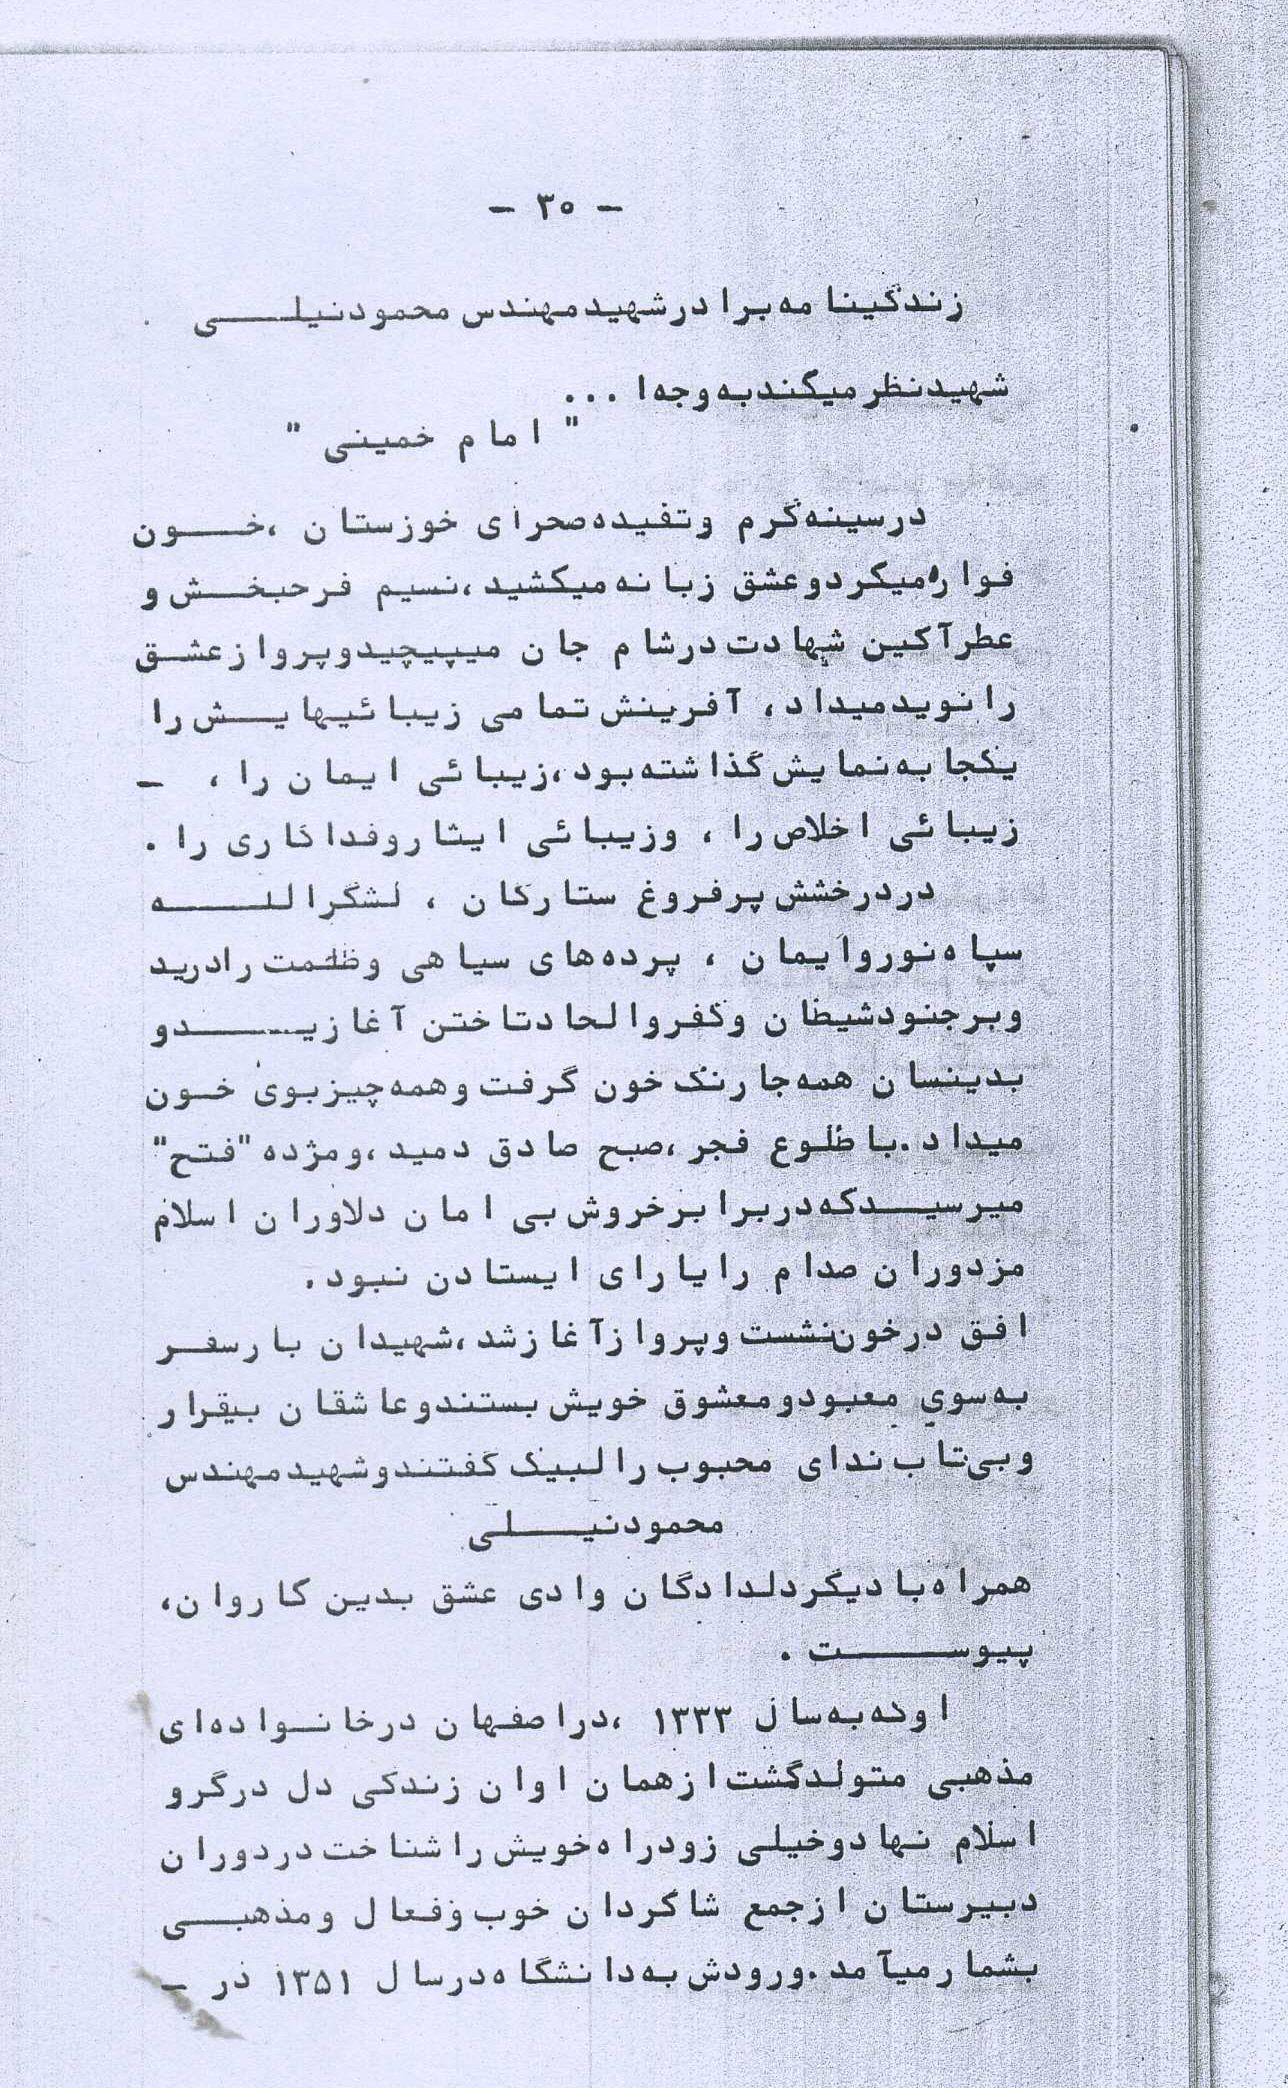 - ۳۰ -
زندگینامه برادر شهید مهندس محمود نیلی
شهید نظر میکند به وجه ا ...
" امام خمینی "
در سینه گرم و تفیده صحرای خوزستان ، خون
فواره میکرد و عشق زبانه میکشید ، نسیم فرحبخش و
عطرآکین شهادت در شام جان میپیچید و پرواز عشق
را نوید میداد ، آفرینش تمامی زیبائیهایش را
یکجا به نمایش گذاشته بود ، زیبائی ایمان را ، -
زیبائی اخلاص را ، و زیبائی ایثار و فداکاری را .
در درخشش پرفروغ ستارگان ، لشگرالله
سپاه نور و ایمان ، پرده‌های سیاهی و ظلمت را درید
و بر جنود شیطان و کفر و الحاد تاختن آغازید و
بدینسان همه جا رنگ خون گرفت و همه چیز بوی خون
میداد . با طلوع فجر ، صبح صادق دمید ، و مژده "فتح"
میرسید که در برابر خروش بی امان دلاوران اسلام
مزدوران صدام را یارای ایستادن نبود .
افق در خون نشست و پرواز آغاز شد ، شهیدان بار سفر
به سوی معبود و معشوق خویش بستند و عاشقان بیقرار
و بی‌تاب ندای محبوب را لبیک گفتند و شهید مهندس
محمود نیلی
همراه با دیگر دلدادگان وادی عشق بدین کاروان ،
پیوست .
او که به سال ۱۳۳۳ ، در اصفهان در خانواده‌ای
مذهبی متولد گشت از همان اوان زندکی دل در گرو
اسلام نهاد و خیلی زود راه خویش را شناخت در دوران
دبیرستان از جمع شاکردان خوب و فعال و مذهبی
بشمار میآمد . ورودش به دانشگاه در سال ۱۳۵۱ در -